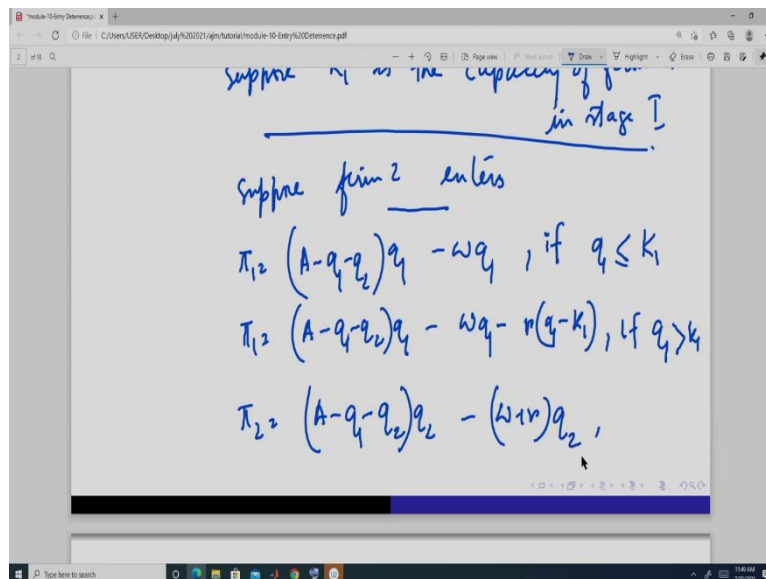 *module-10-Entry Deterrence.p x +
File | C:/Users/USER/Desktop/july%202021/ajm/tutorial/module-10-Entry%20Deterrence.pdf
2 of 18 Page view Read aloud Draw Highlight Erase
Suppose K1 is the capacity of
in stage I
Suppose firm 2 enters
π₁ = (A-q₁-q₂)q₁ - wq₁ , if q₁ ≤ K₁
π₁ = (A-q₁-q₂)q₁ - wq₁ - r(q₁-K₁), if q₁ > K₁
π₂ = (A-q₁-q₂)q₂ - (w+r)q₂ ,
Type here to search
11:49 AM